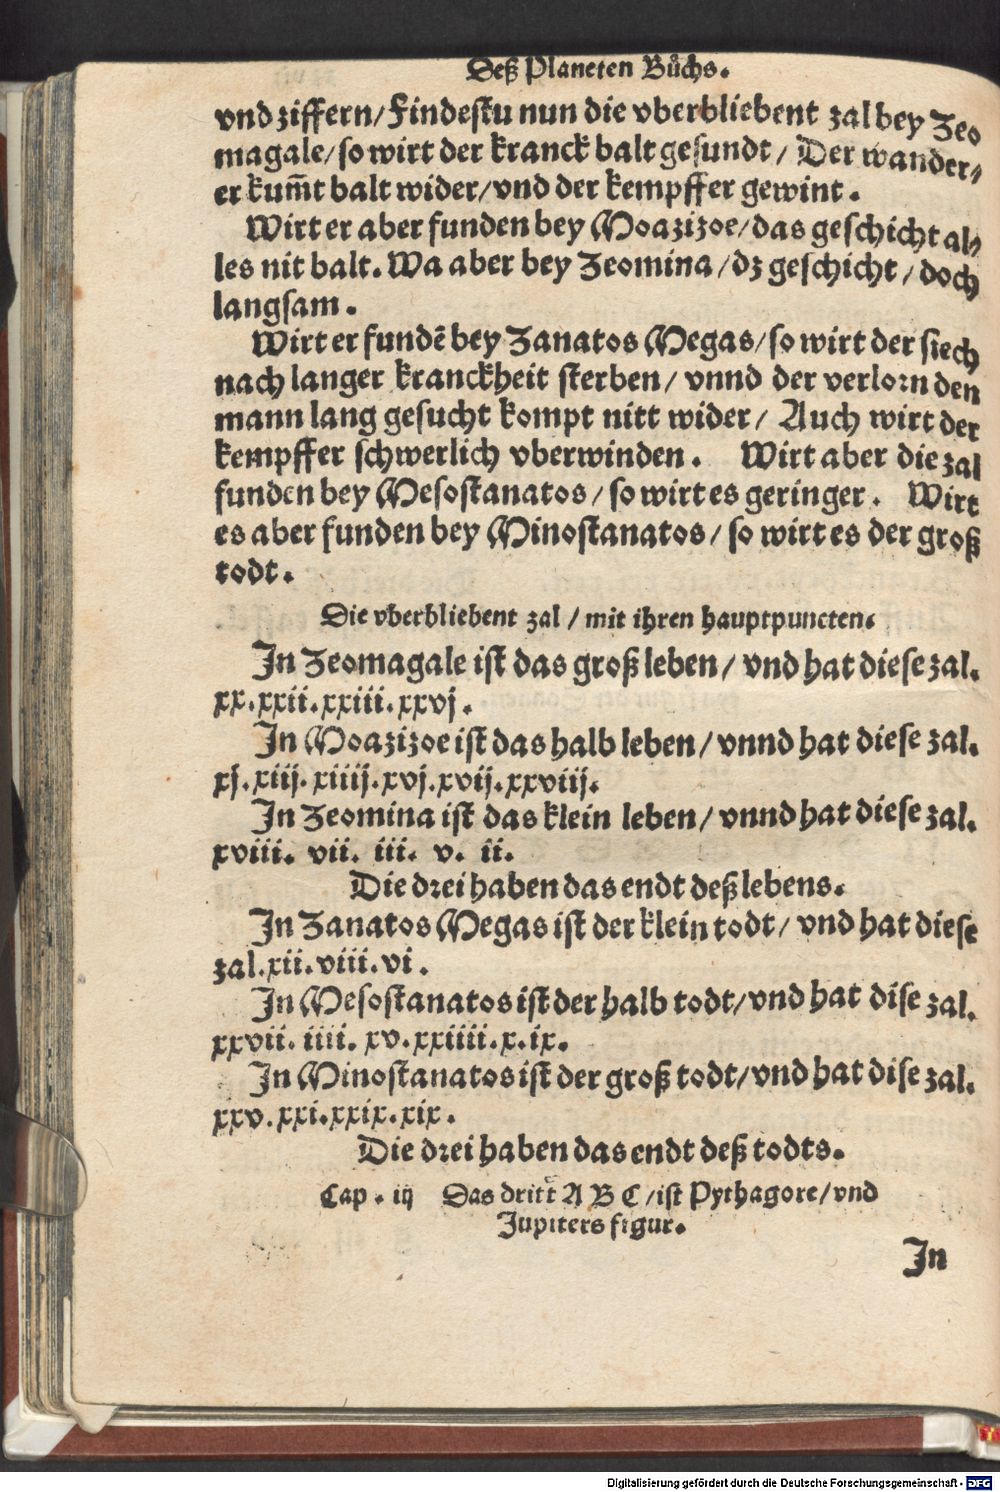 Deß Planeten Bůchs.
vnd ziffern/ Findestu nun die vberbliebent zal bey Zeo
magale/ so wirt der kranck balt gesundt/ Der wander-
er kum̃t balt wider/ vnd der kempffer gewint.
Wirt er aber funden bey Moazizoe/ das geschicht al-
les nit balt. Wa aber bey Zeomina/ dz geschicht/ doch
langsam.
Wirt er fundẽ bey Zanatos Megas/ so wirt der siech
nach langer kranckheit sterben/ vnnd der verlorn den
mann lang gesucht kompt nitt wider/ Auch wirt der
kempffer schwerlich vberwinden. Wirt aber die zal
funden bey Mesostanatos/ so wirt es geringer. Wirt
es aber funden bey Minostanatos/ so wirt es der groß
todt.
Die vberbliebent zal/ mit ihren hauptpuncten.
In Zeomagale ist das groß leben/ vnd hat diese zal.
xx. xxii. xxiii. xxvj.
In Moazizoe ist das halb leben/ vnnd hat diese zal.
xj. xiij. xiiij. xvj. xvij. xxviij.
In Zeomina ist das klein leben/ vnnd hat diese zal.
xviii. vii. iii. v. ii.
Die drei haben das endt deß lebens.
In Zanatos Megas ist der klein todt/ vnd hat diese
zal. xii. viii. vi.
In Mesostanatos ist der halb todt/ vnd hat dise zal.
xxvii. iiii. xv. xxiiii. x. ix.
In Minostanatos ist der groß todt/ vnd hat dise zal.
xxv. xxi. xxix. xix.
Die drei haben das endt deß todts.
Cap. iij Das dritt A B C/ ist Pythagore/ vnd
Jupiters figur.
In
Digitalisierung gefördert durch die Deutsche Forschungsgemeinschaft - DFG